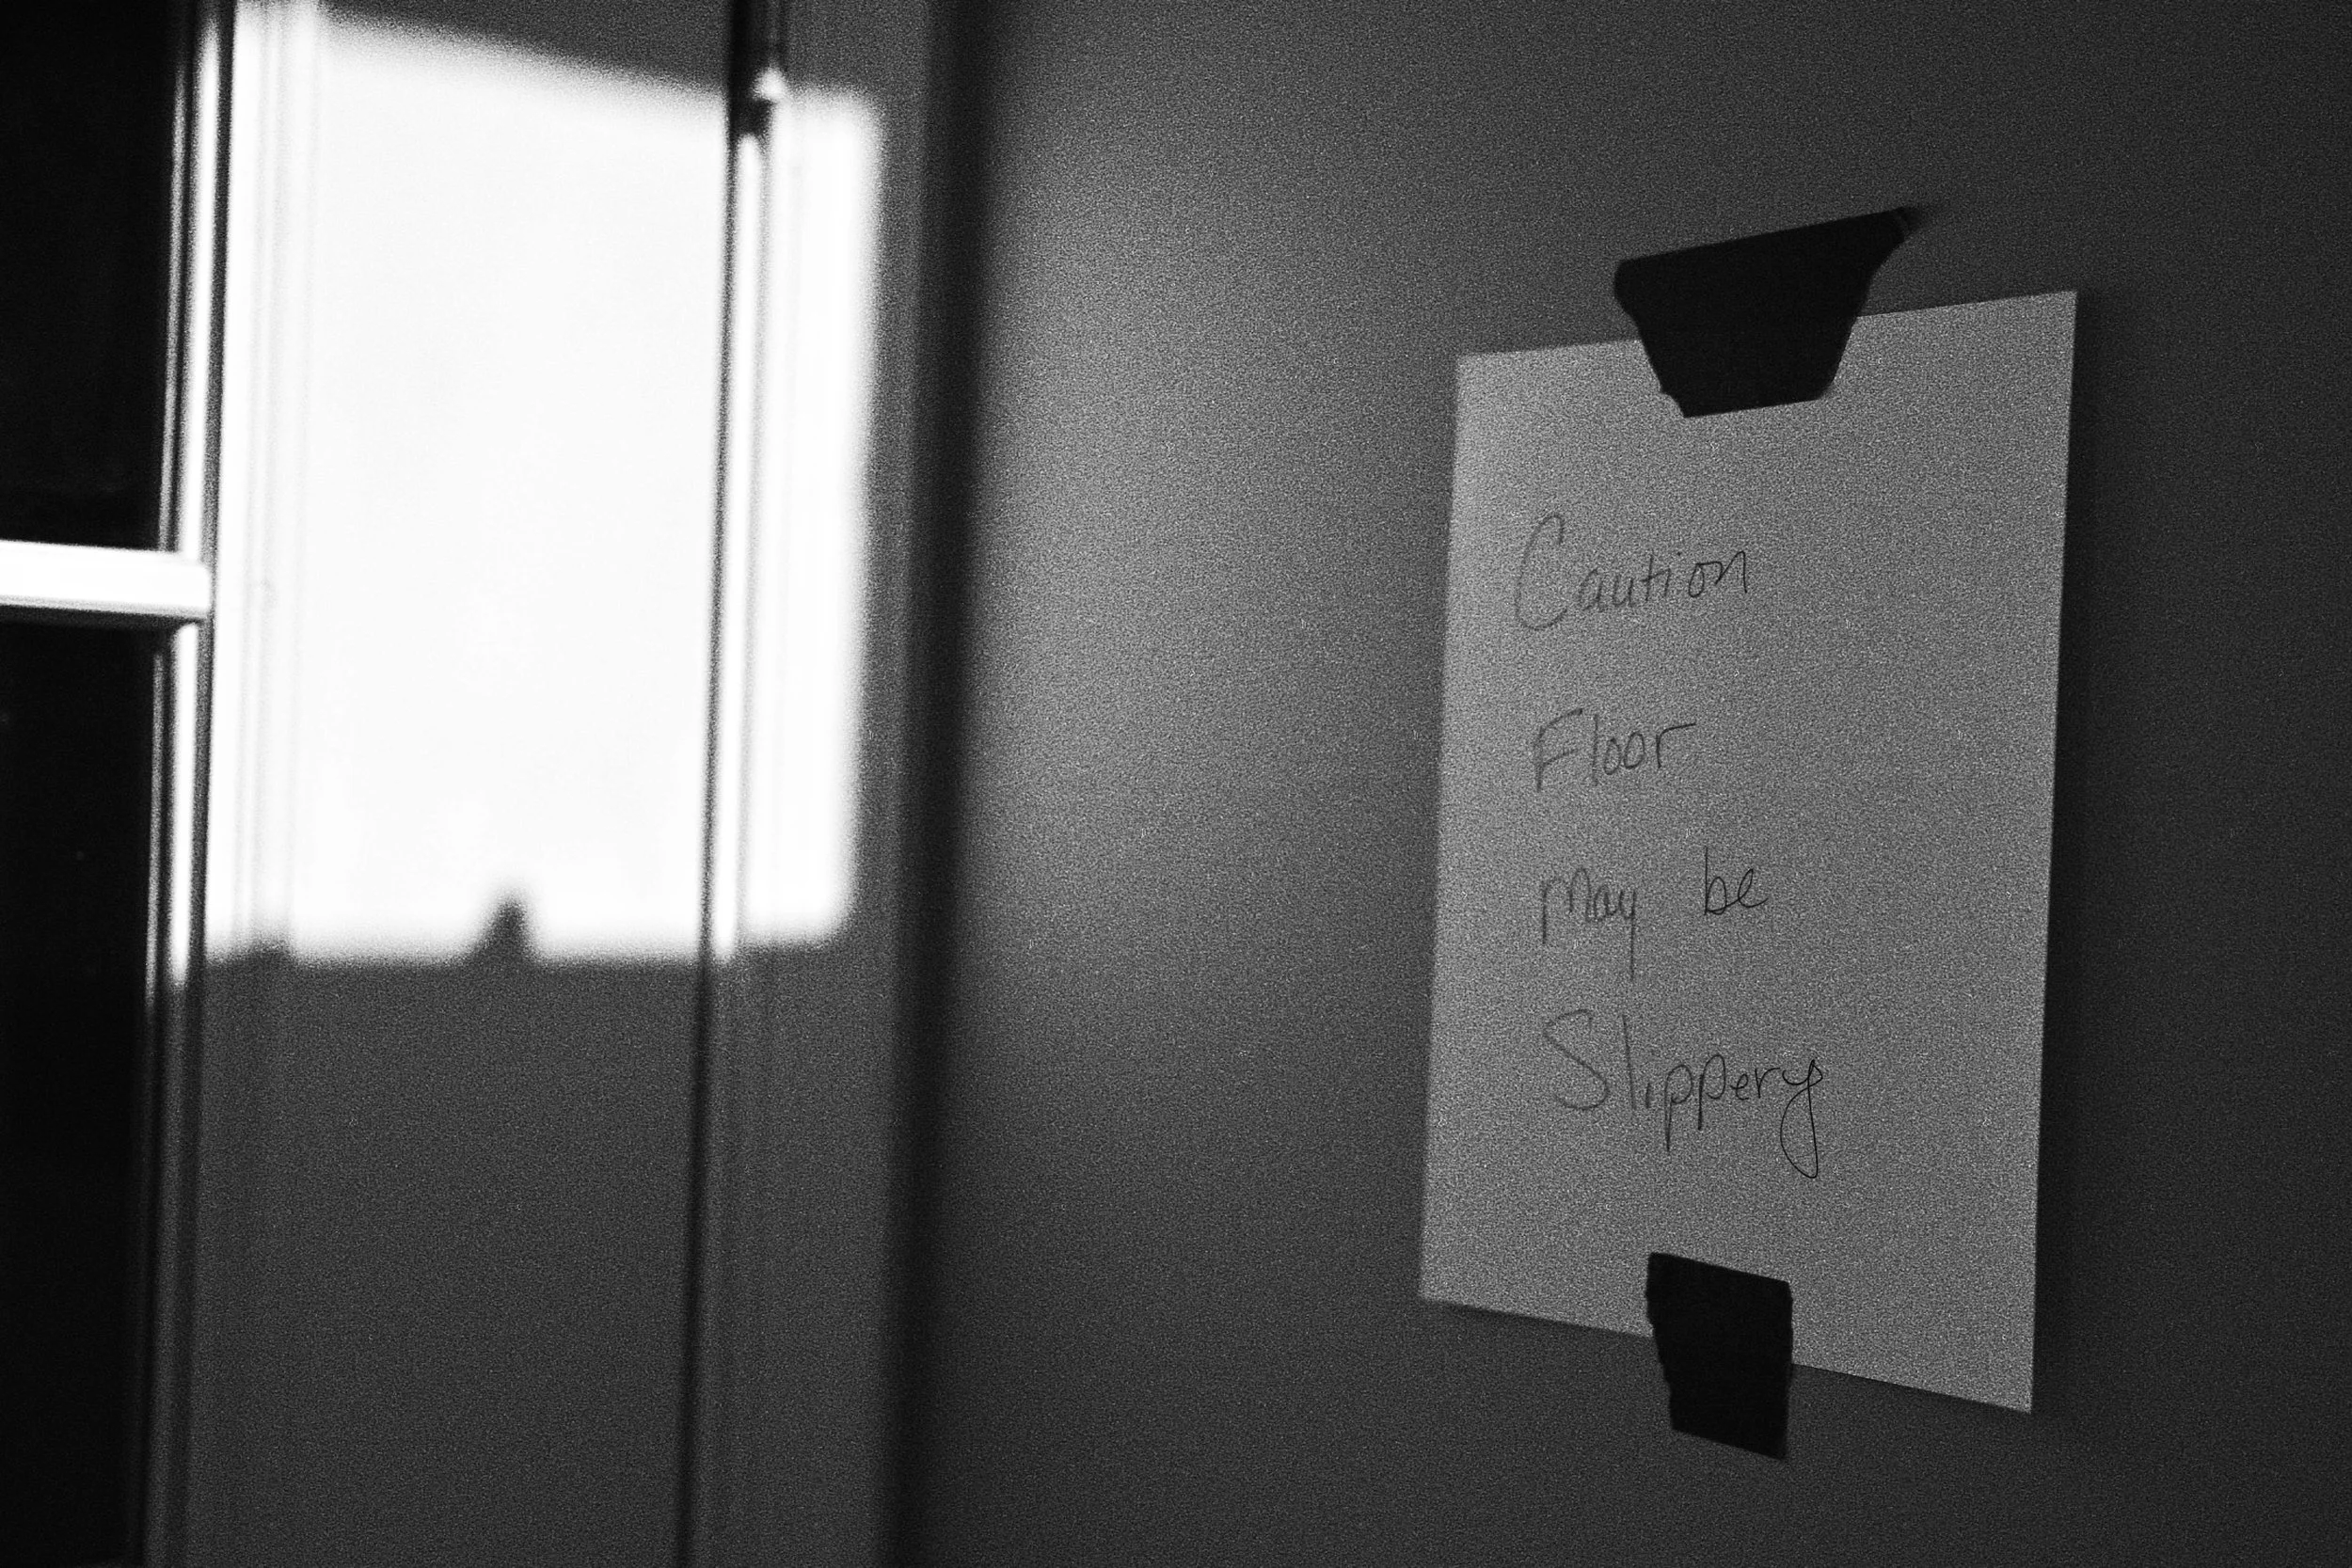 Caution
Floor
may be
Slippery